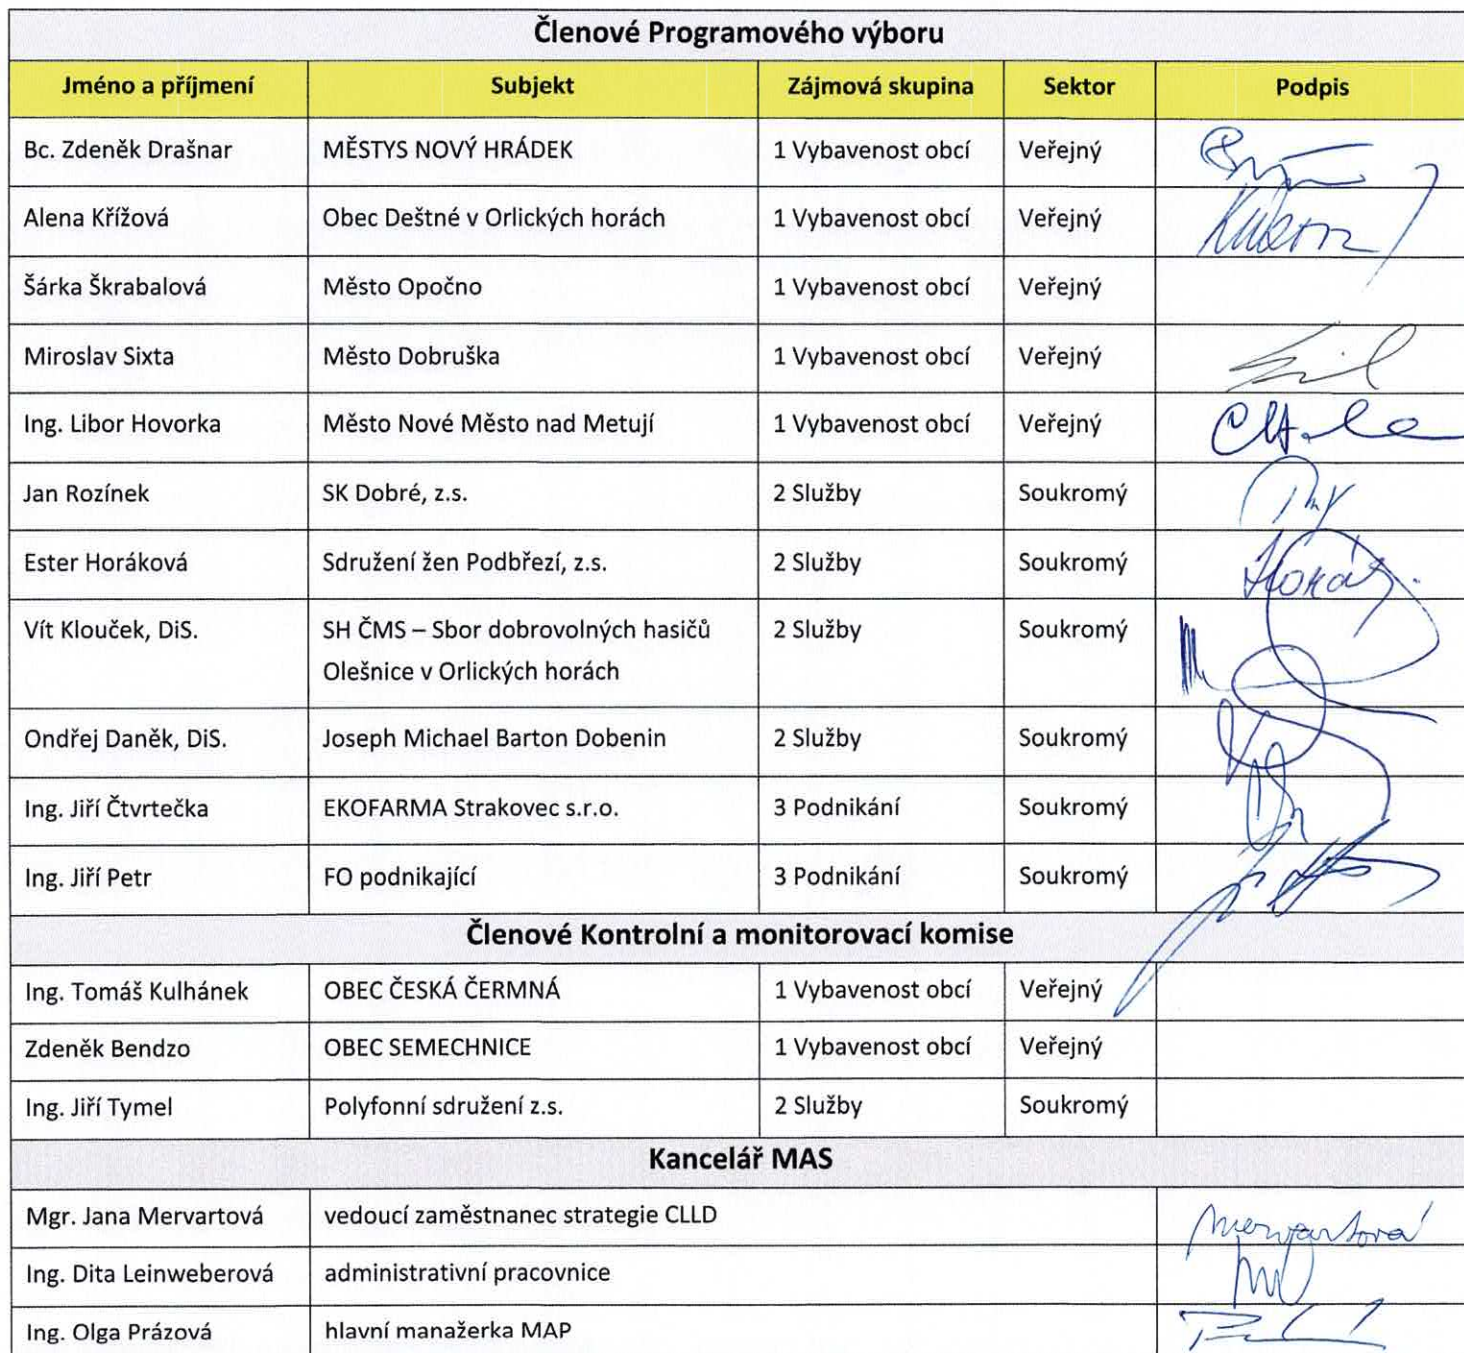 Členové Programového výboru
Jméno a příjmení Subjekt Zájmová skupina Sektor Podpis
Bc. Zdeněk Drašnar MĚSTYS NOVÝ HRÁDEK 1 Vybavenost obcí Veřejný
Alena Křížová Obec Deštné v Orlických horách 1 Vybavenost obcí Veřejný
Šárka Škrabalová Město Opočno 1 Vybavenost obcí Veřejný
Miroslav Sixta Město Dobruška 1 Vybavenost obcí Veřejný
Ing. Libor Hovorka Město Nové Město nad Metují 1 Vybavenost obcí Veřejný
Jan Rozínek SK Dobré, z.s. 2 Služby Soukromý
Ester Horáková Sdružení žen Podbřezí, z.s. 2 Služby Soukromý
Vít Klouček, DiS. SH ČMS – Sbor dobrovolných hasičů 2 Služby Soukromý
Olešnice v Orlických horách
Ondřej Daněk, DiS. Joseph Michael Barton Dobenin 2 Služby Soukromý
Ing. Jiří Čtvrtečka EKOFARMA Strakovec s.r.o. 3 Podnikání Soukromý
Ing. Jiří Petr FO podnikající 3 Podnikání Soukromý
Členové Kontrolní a monitorovací komise
Ing. Tomáš Kulhánek OBEC ČESKÁ ČERMNÁ 1 Vybavenost obcí Veřejný
Zdeněk Bendzo OBEC SEMECHNICE 1 Vybavenost obcí Veřejný
Ing. Jiří Tymel Polyfonní sdružení z.s. 2 Služby Soukromý
Kancelář MAS
Mgr. Jana Mervartová vedoucí zaměstnanec strategie CLLD Mervartová
Ing. Dita Leinweberová administrativní pracovnice
Ing. Olga Prázová hlavní manažerka MAP